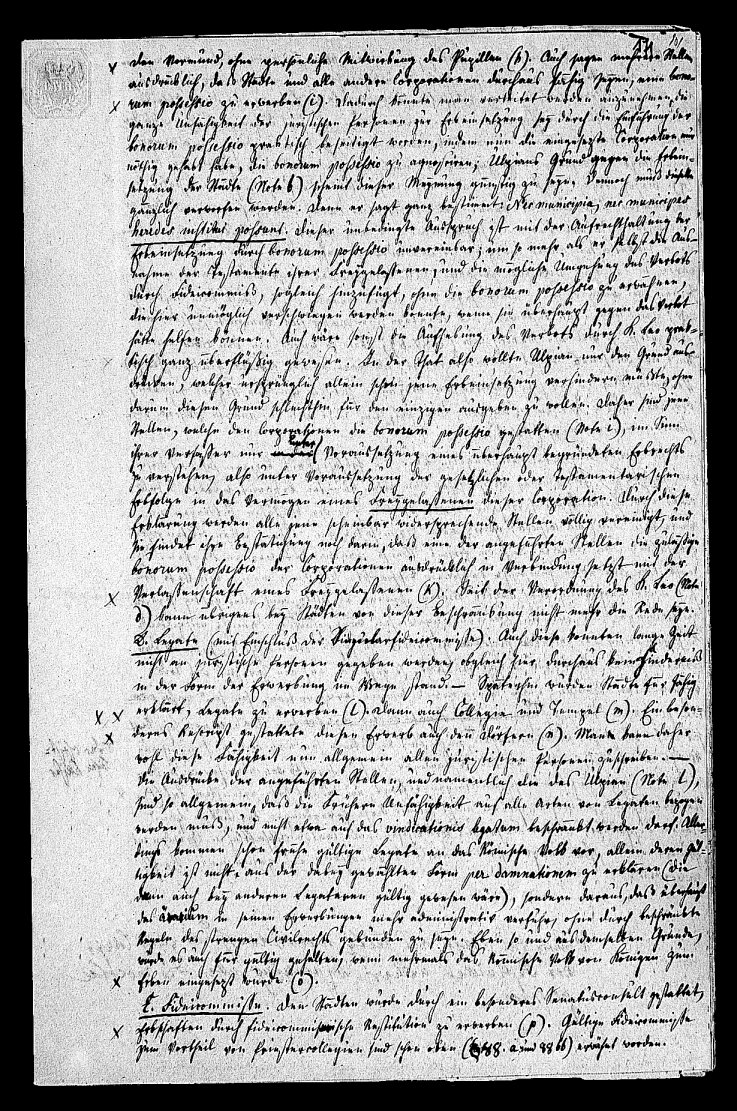 den Vormund, ohne persönliche Mitwirkung des Pupillen (h). Auch sagen mehrere Stellen
ausdrücklich, daß Städte und alle andere Corporationen durchaus fähig seyen, eine bono-
rum possessio zu erwerben (i). Dadurch könnte man verleitet werden anzunehmen, die
ganze Unfähigkeit der juristischen Personen zur Erbeinsetzung sey durch die Einführung der
bonorum possessio praktisch beseitigt worden, indem nun die eingesetzte Corporation nur
nöthig gehabt habe, die bonorum possessio zu agnosciren; Ulpians Grund gegen die Erbein-
setzung der Städte (Note b) scheint dieser Meynung günstig zu seyn. Dennoch muß dieselbe
gänzlich verworfen werden. Denn er sagt ganz bestimmt: Nec municipia, nec municipes
heredes institui possunt. Dieser unbedingte Ausspruch ist mit der Aufrechthaltung der
Erbeinsetzung durch bonorum possessio unvereinbar; um so mehr als er selbst die Aus-
nahme der Testamente ihrer Freygelassenen, und die mögliche Umgehung des Verbots
durch Fideicommiß, sogleich hinzufügt, ohne die bonorum possessio zu erwähnen,
die hier unmöglich verschwiegen werden konnte, wenn sie überhaupt gegen das Verbot
hätte helfen können. Auch wäre sonst die Aufhebung des Verbots durch K. Leo prak-
tisch ganz überflüssig gewesen. In der That also wollte Ulpian nur den Grund aus-
drücken, welcher ursprünglich allein schon jene Erbeinsetzung verhindern mußte, ohne
darum diesen Grund schlechthin für den einzigen ausgeben zu wollen. Daher sind jene
Stellen, welche den Corporationen die bonorum possessio gestatten (Note i), im Sinn
ihrer Verfasser nur unter Voraussetzung eines überhaupt begründeten Erbrechts
zu verstehen, also unter Voraussetzung der gesetzlichen oder testamentarischen
Erbfolge in das Vermögen eines Freygelassenen dieser Corporation. Durch diese
Erklärung werden alle jene scheinbar widersprechende Stellen völlig vereinigt, und
sie findet ihre Bestätigung noch darin, daß eine der angeführten Stellen die zulässige
bonorum possessio der Corporationen ausdrücklich in Verbindung setzt mit der
Verlassenschaft eines Freygelassenen (k). Seit der Verordnung des K. Leo (Note
d) kann übrigens bey Städten von dieser Beschränkung nicht mehr die Rede seyn.
D. Legate (mit Einschluß der Singularfideicommisse). Auch diese konnten lange Zeit
nicht an juristische Personen gegeben werden, obgleich hier durchaus kein Hinderniß
in der Form der Erwerbung im Wege stand. — Späterhin wurden Städte für fähig
erklärt, Legate zu erwerben (l). Dann auch Collegien und Tempel (m). Ein beson-
deres Rescript gestattete diesen Erwerb auch den Dörfern (n). Man kann daher
wohl diese Fähigkeit nun allgemein allen juristischen Personen zuschreiben. —
Die Ausdrücke der angeführten Stellen, und namentlich die des Ulpian (Note l),
sind so allgemein, daß die frühere Unfähigkeit auf alle Arten von Legaten bezogen
werden muß, und nicht etwa auch das vindicationis legatum beschränkt werden darf. Aller-
dings kommen schon frühe gültige Legate an das Römische Volk vor, allein deren Gül-
tigkeit ist nicht aus der dabey gewählten Form per damnationem zu erklären (die
dann auch bey anderen Legataren gültig gewesen wäre), sondern daraus, daß überhaupt
das Ararium in seinen Erwerbungen mehr administrativ verfuhr, ohne durch beschränkte
Regeln des strengen Civilrechts gebunden zu seyn. Eben so und aus demselben Grunde,
wurde es auch für gültig gehalten, wenn mehrmals das Römische Volk von Königen zum
Erben eingesetzt wurde (o).
E. Fideicommisse. Den Städten wurde durch ein besonderes Senatusconsult gestattet,
Erbschaften durch fideicommissarische Restitution zu erwerben (p). Gültige Fideicommisse
zum Vortheil von Priestercollegien sind schon oben (§ 88. a und 88 bb) erwähnt worden.